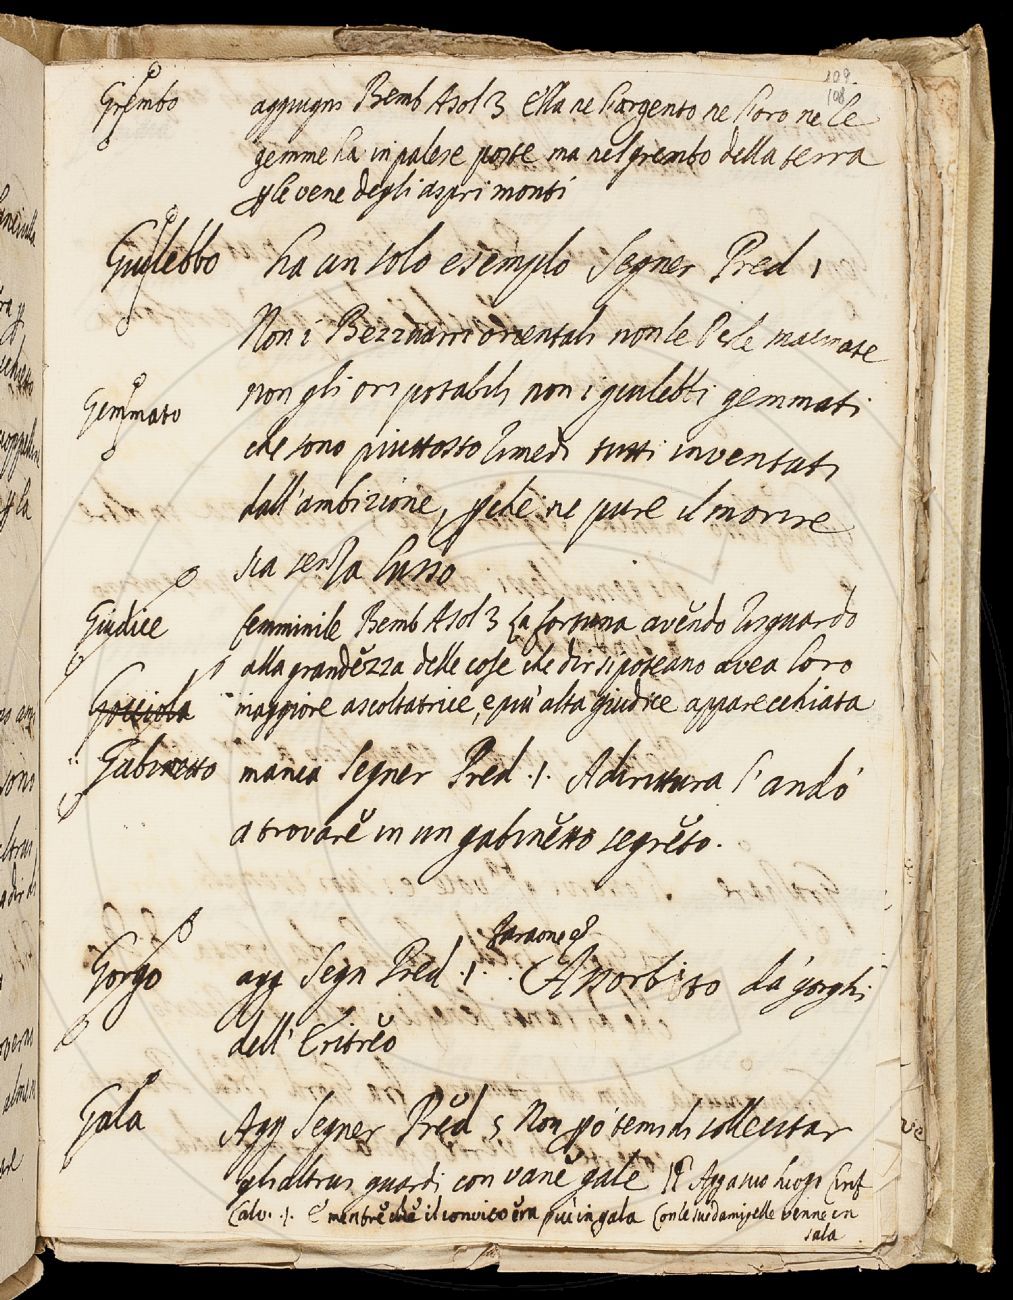 109.
108
Grembo aggiugni Bemb Asol 3 Ella ne l'argento ne l'oro ne le
gemme ha in palese poste ma nel grembo della terra
p le vene degli aspri monti
Giulebbo ha un solo esempio Segner Pred 1
Non i Bezzuarri orientali non le macinate
Gemmato non gli ori potabili non i giulebbi gemmati
che sono piuttosto rimedi tutti inventati
dall'ambizione, pche ne pure il morire
sia senza lusso
Giudice femminile Bemb Asol 3 La fortuna avendo risguardo
alla grandezza delle cose che dir si poteano avea loro
Gocciola maggiore ascoltatrice, e più alta giudice apparecchiata
Gabinetto manca Segner Pred. 1. Adirittura l'andò
a trovare in un gabinetto segreto.
Faraone è
Gorgo agg Segn Pred. 1. Assorbito da' gorghi
dell' Eritreo
Gala Agg Segner Pred 5 Non pò temi di sollecitar
gli altrui guardi con vane gale Agg a suo luogo
Calv. 1. E mentre che il convito era più in gala Con le sue damigelle venne in
sala